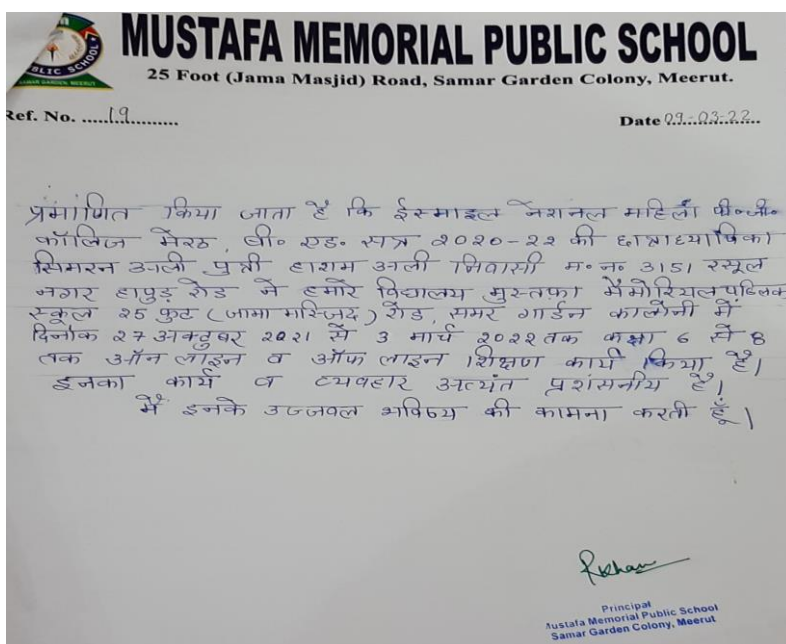 MUSTAFA MEMORIAL PUBLIC SCHOOL
BLIC SCHOOL
SAMAR GARDEN MEERUT
25 Foot (Jama Masjid) Road, Samar Garden Colony, Meerut.
Ref. No. ......19............
Date 09-03-22
प्रमाणित किया जाता है कि ईस्माइल नेशनल महिला पी०जी०
कॉलिज मेरठ, बी० एड० सत्र २०२०-२२ की छात्राध्यापिका
सिमरन अली पुत्री हाशम अली निवासी म० न० 3151 रसूल
नगर हापुड़ रोड ने हमारे विद्यालय मुस्तफा मैमोरियल पब्लिक
स्कूल २5 फुट (जामा मस्जिद) रोड, समर गार्डन कालोनी में
दिनांक २७ अक्टूबर २०२१ से 3 मार्च २०२२ तक कक्षा 6 से 8
तक ऑन लाइन व ऑफ लाइन शिक्षण कार्य किया है।
इनका कार्य व व्यवहार अत्यंत प्रशंसनीय है।
मैं इनके उज्जवल भविष्य की कामना करती हूँ।
RKhan
Principal
Mustafa Memorial Public School
Samar Garden Colony, Meerut